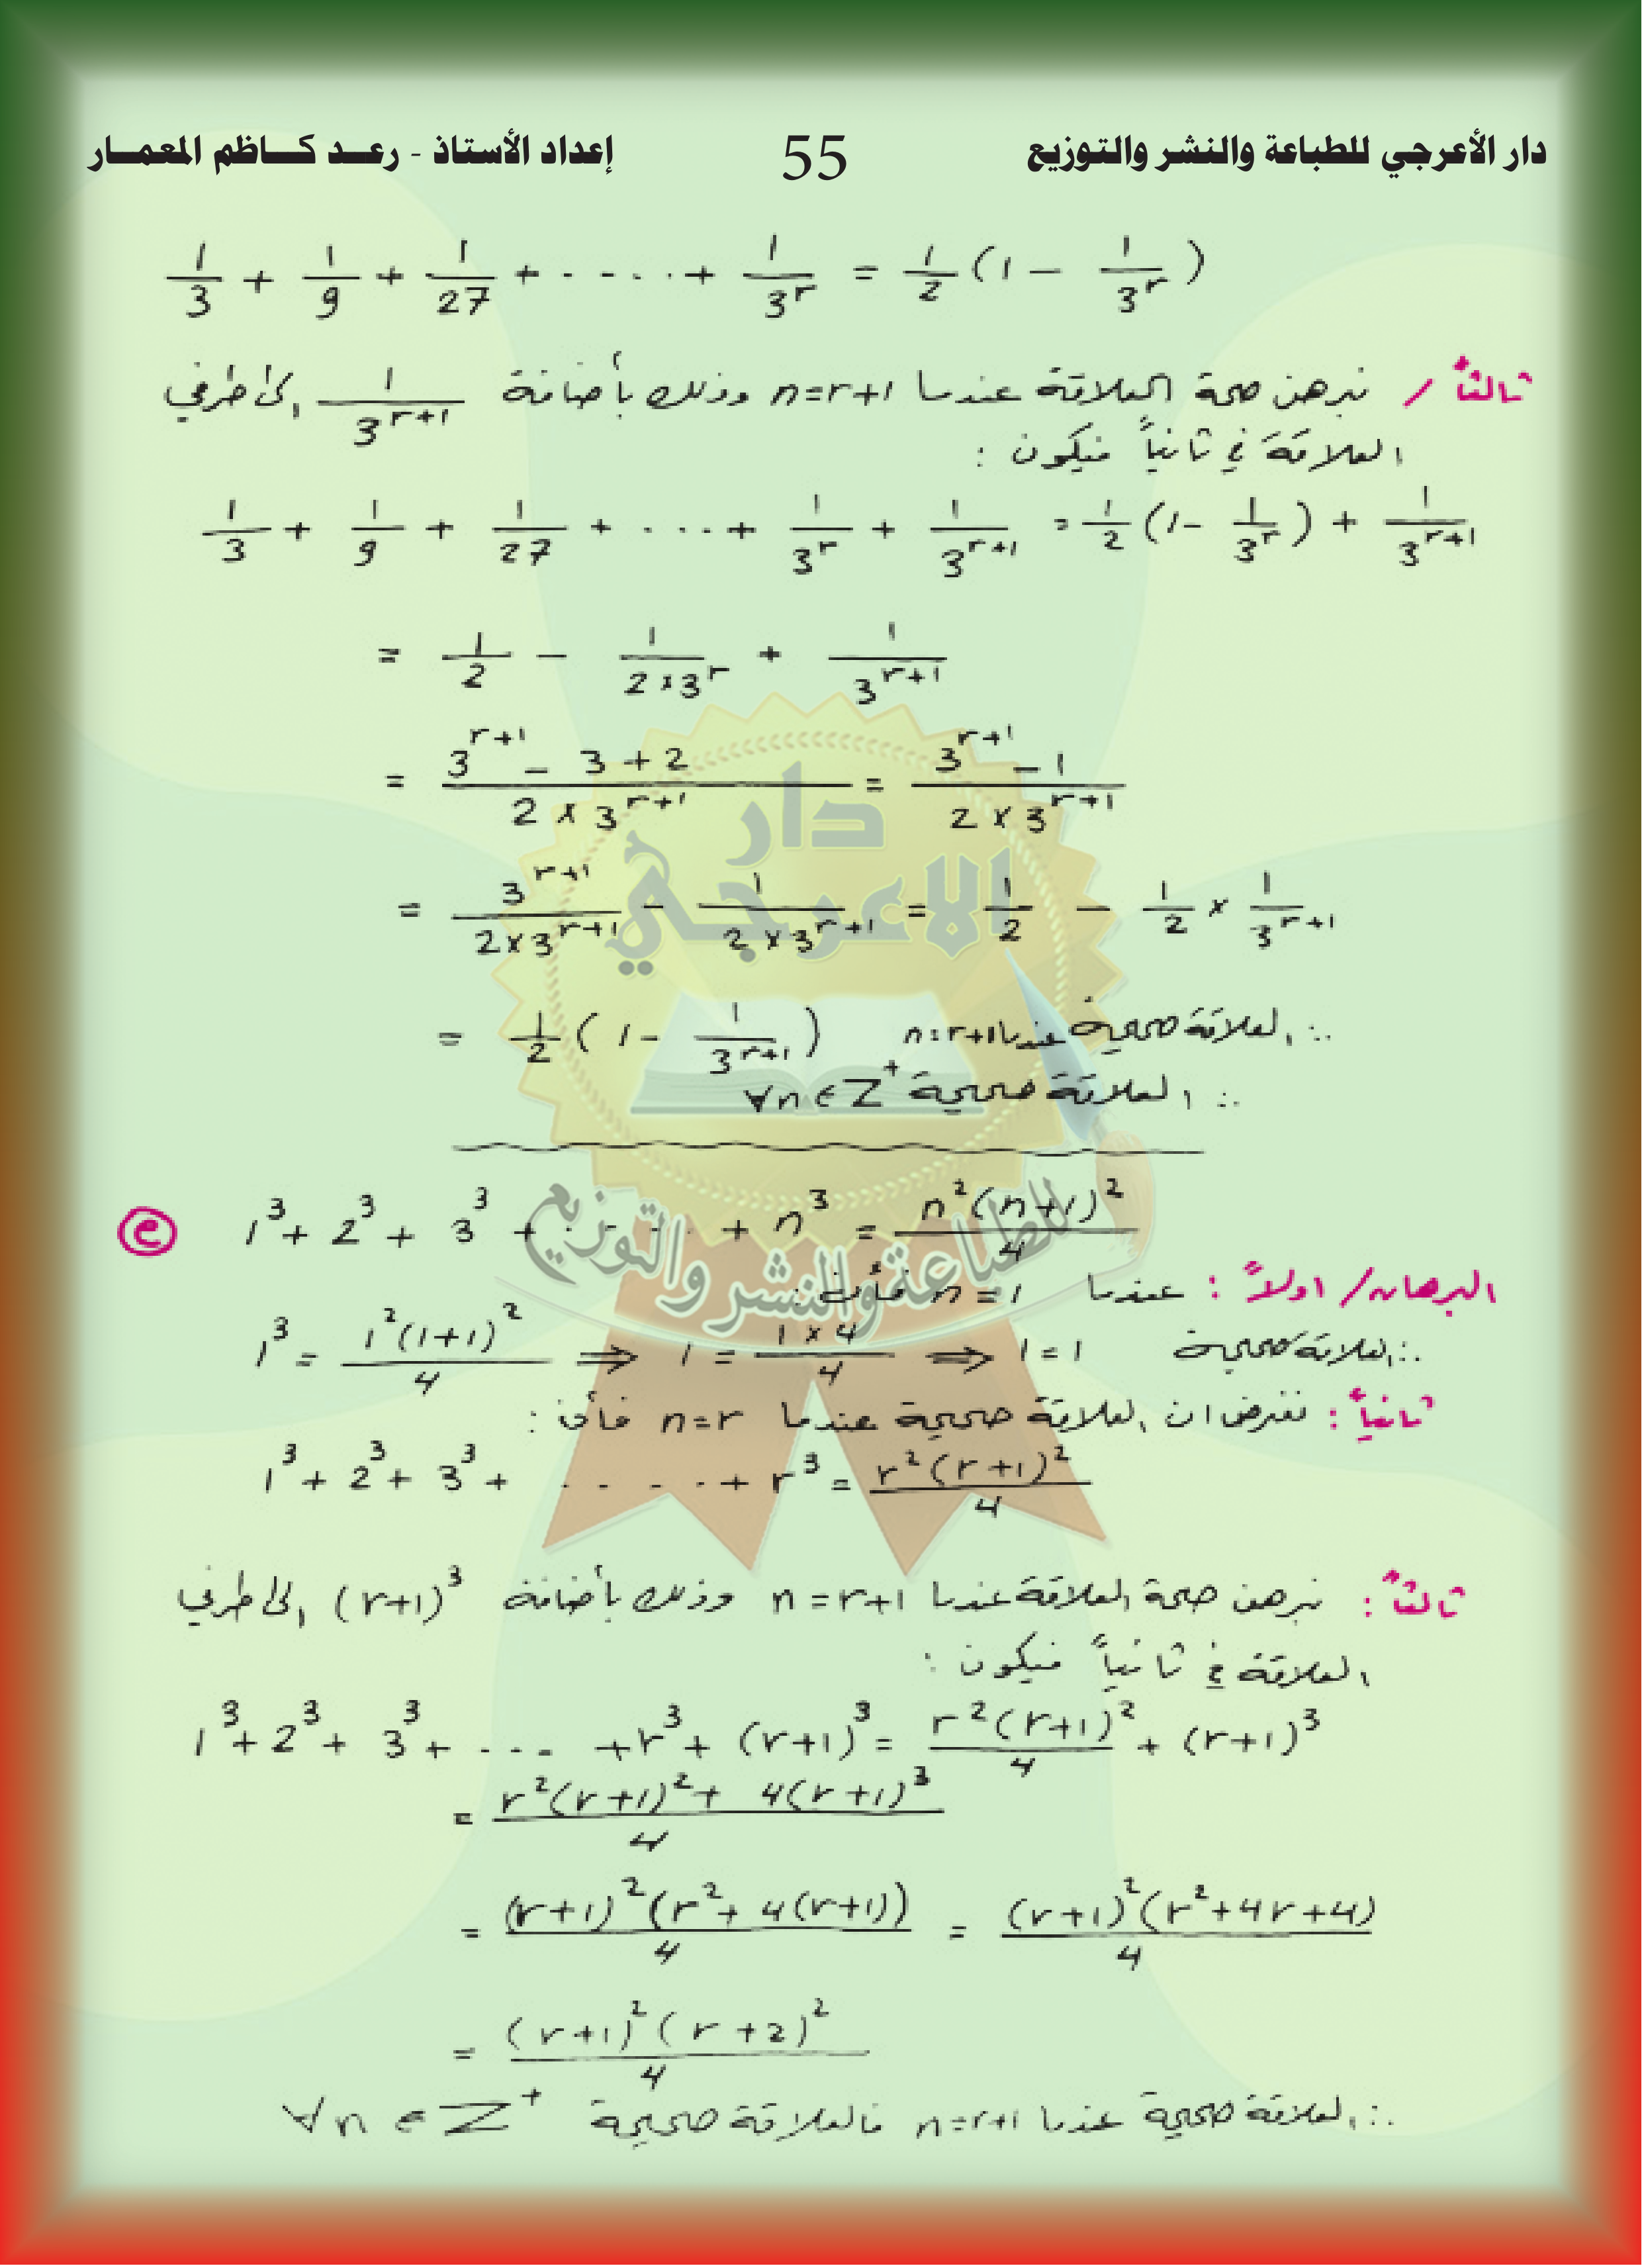 دار الأعرجي للطباعة والنشر والتوزيع 55 إعداد الأستاذ - رعــد كــاظم المعمــار
1/3 + 1/9 + 1/27 + ..... + 1/3^r = 1/2 (1 - 1/3^r)
ثالثاً / نبرهن صحة العلاقة عندما n=r+1 وذلك بأضافة 1/3^(r+1) إلى طرفي
العلاقة في ثانياً فيكون :
1/3 + 1/9 + 1/27 + ... + 1/3^r + 1/3^(r+1) = 1/2 (1 - 1/3^r) + 1/3^(r+1)
= 1/2 - 1/(2×3^r) + 1/3^(r+1)
= (3^(r+1) - 3 + 2)/(2×3^(r+1)) = (3^(r+1) - 1)/(2×3^(r+1))
= 3^(r+1)/(2×3^(r+1)) - 1/(2×3^(r+1)) = 1/2 - 1/2 × 1/3^(r+1)
= 1/2 (1 - 1/3^(r+1)) ∴ العلاقة صحيحة عندما n=r+1
∴ العلاقة صحيحة ∀n∈Z⁺
دار
الاعرجي
للطباعة والنشر والتوزيع
ⓔ 1³ + 2³ + 3³ + ..... + n³ = n²(n+1)²/4
البرهان / اولاً : عندما n=1 فأن :
1³ = 1²(1+1)²/4 ⇒ 1 = (1×4)/4 ⇒ 1=1 ∴ العلاقة صحيحة
ثانياً : نفرض ان العلاقة صحيحة عندما n=r فأن :
1³ + 2³ + 3³ + ..... + r³ = r²(r+1)²/4
ثالثاً : نبرهن صحة العلاقة عندما n=r+1 وذلك بأضافة (r+1)³ إلى طرفي
العلاقة في ثانياً فيكون :
1³ + 2³ + 3³ + ... + r³ + (r+1)³ = r²(r+1)²/4 + (r+1)³
= (r²(r+1)² + 4(r+1)³)/4
= (r+1)²(r² + 4(r+1))/4 = (r+1)²(r²+4r+4)/4
= (r+1)²(r+2)²/4
∴ العلاقة صحيحة عندما n=r+1 فالعلاقة صحيحة ∀n∈Z⁺